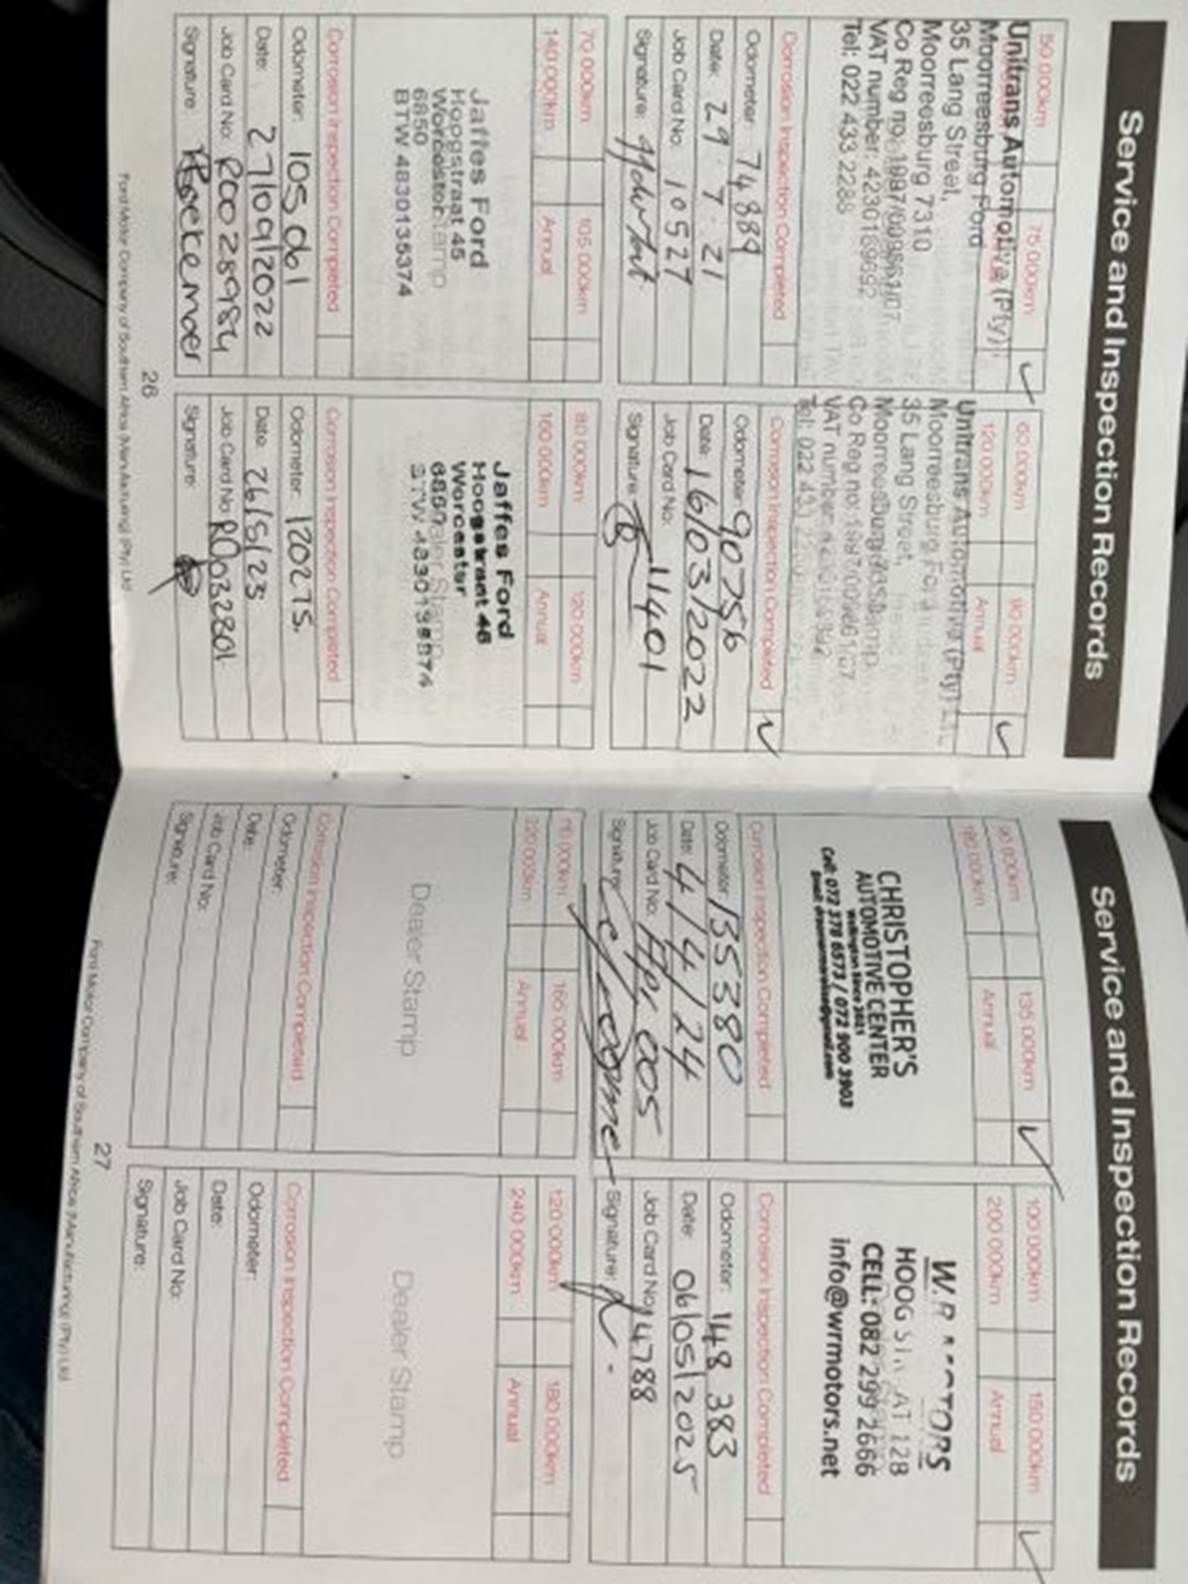 Service and Inspection Records
50 000km
75 000km ✓
Unitrans Automotive (Pty)
Moorreesburg Ford
35 Lang Street,
Moorreesburg 7310
Co Reg no: 1997/009561/07
VAT number: 4230169692
Tel: 022 433 2288
Corrosion Inspection Completed
Odometer: 74889
Date: 29 . 7 . 21
Job Card No: 10527
Signature:
60 000km
90 000km ✓
120 000km
Annual
Unitrans Automotive (Pty)
Moorreesburg Ford
35 Lang Street,
Moorreesburg
Co Reg no:
VAT number:
Tel: 022 433
Corrosion Inspection Completed ✓
Odometer: 90756
Date: 16/03/2022
Job Card No: 11401
Signature:
70 000km
105 000km
140 000km
Annual
Jaffes Ford
Hoogstraat 45
Worcester
6850
BTW 4830135374
Corrosion Inspection Completed
Odometer: 105 061
Date: 27/09/2022
Job Card No: R0028984
Signature:
80 000km
120 000km
160 000km
Annual
Jaffes Ford
Hoogstraat 45
Worcester
6850
BTW 4830135374
Corrosion Inspection Completed
Odometer: 120275.
Date: 26/5/23
Job Card No: R0032801
Signature:
26
Ford Motor Company of Southern Africa (Manufacturing) (Pty) Ltd
Service and Inspection Records
90 000km
135 000km ✓
180 000km
Annual
CHRISTOPHER'S
AUTOMOTIVE CENTER
Wellington Since 2021
Cell: 072 378 6573 / 072 900 3903
Corrosion Inspection Completed
Odometer: 135380
Date: 4/4/24
Job Card No: Apr 005
Signature:
100 000km
150 000km ✓
200 000km
Annual
W.R MOTORS
HOOGSTRAAT 128
CELL: 082 299 2666
info@wrmotors.net
Corrosion Inspection Completed
Odometer: 148 383
Date: 06/05/2025
Job Card No: 14788
Signature:
110 000km
165 000km
220 000km
Annual
Dealer Stamp
Corrosion Inspection Completed
Odometer:
Date:
Job Card No:
Signature:
120 000km
180 000km
240 000km
Annual
Dealer Stamp
Corrosion Inspection Completed
Odometer:
Date:
Job Card No:
Signature:
27
Ford Motor Company of Southern Africa (Manufacturing) (Pty) Ltd